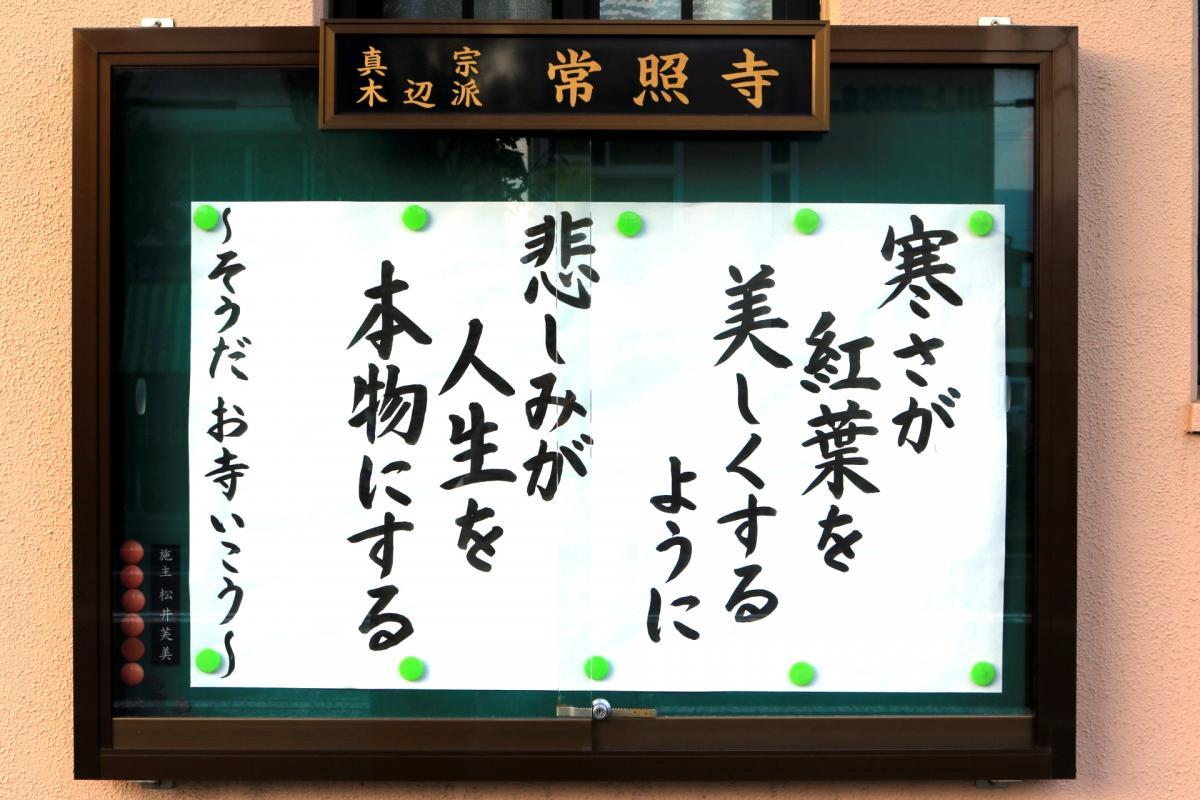 真宗
木辺派
常照寺
寒さが
紅葉を
美しくする
ように
悲しみが
人生を
本物にする
〜そうだ お寺いこう〜
施主 松井芙美